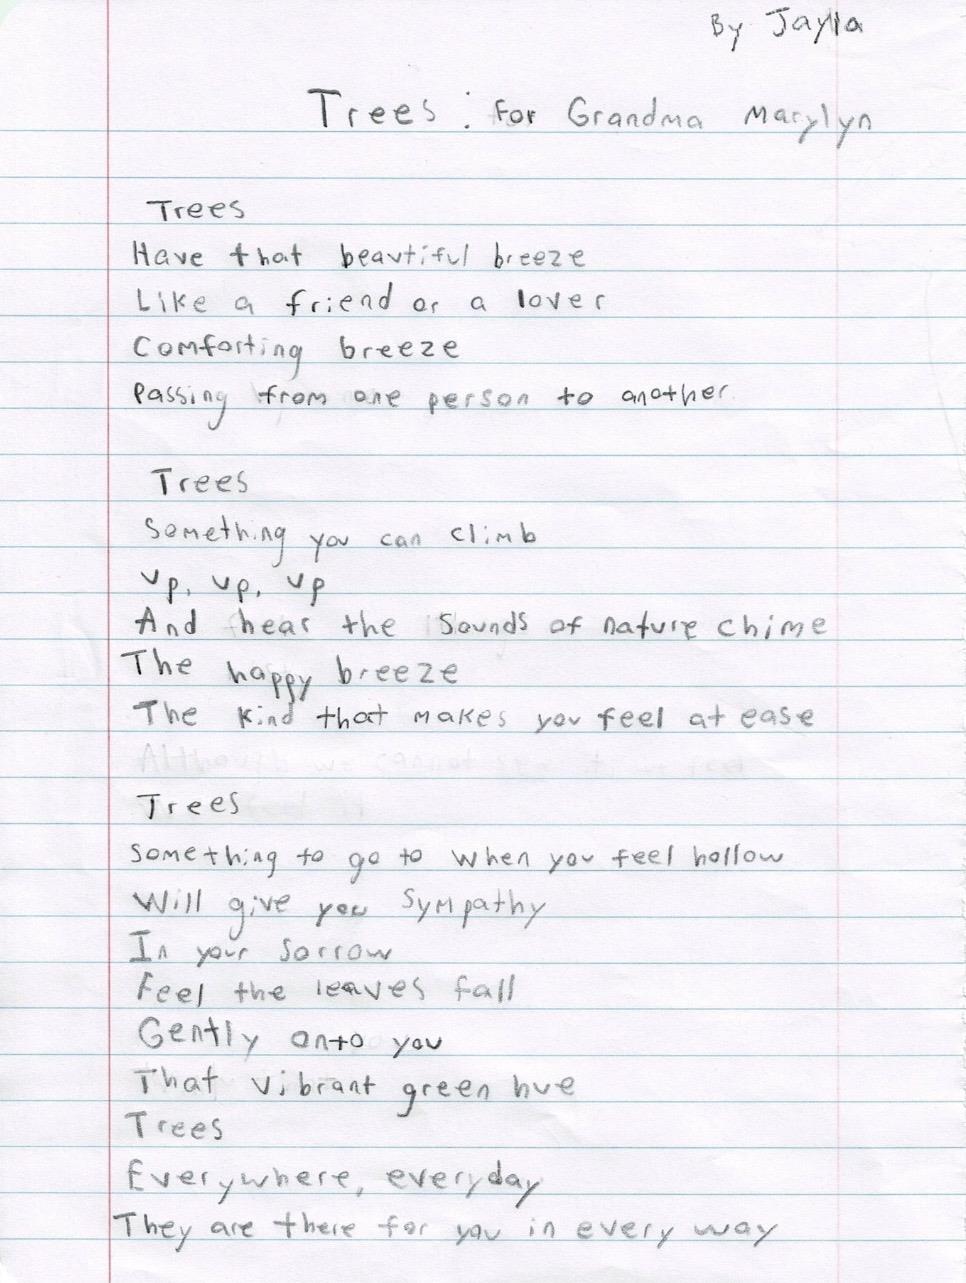 By Jayla
Trees: For Grandma Marylyn
Trees
Have that beautiful breeze
Like a friend or a lover
Comforting breeze
Passing from one person to another
Trees
Something you can climb
Up, up, up
And hear the sounds of nature chime
The happy breeze
The kind that makes you feel at ease
Although we cannot
Trees
Something to go to when you feel hollow
Will give you sympathy
In your sorrow
Feel the leaves fall
Gently onto you
That vibrant green hue
Trees
Everywhere, everyday
They are there for you in every way